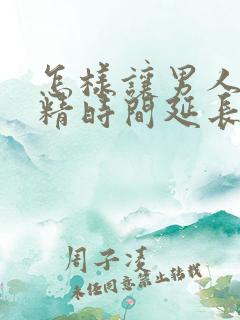 怎樣讓男人
精時間延長
周子淩
未经同意禁止转载